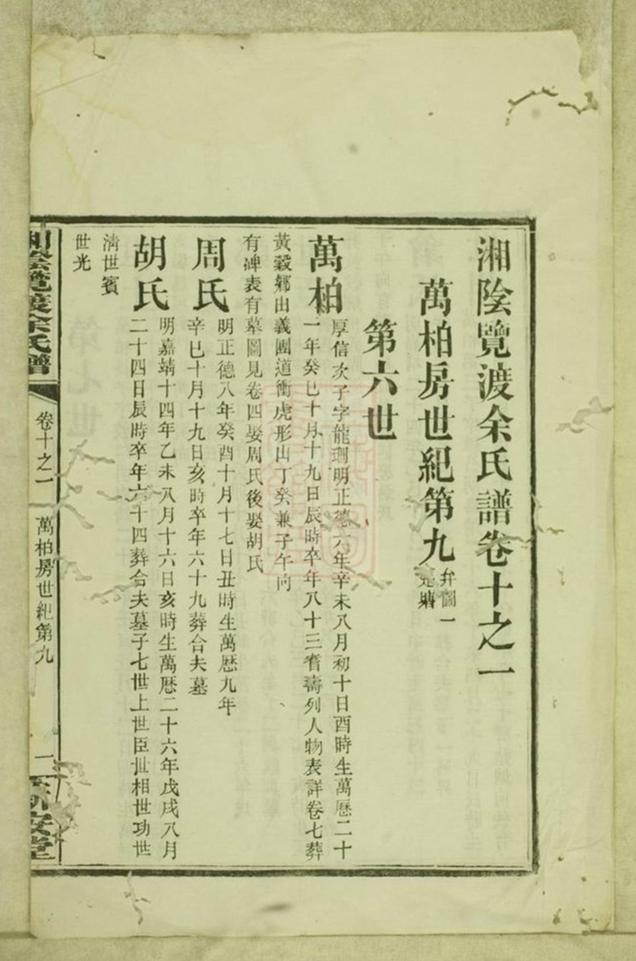 湘陰覽渡余氏譜卷十之一
萬柏房世紀第九
弁圖一
第六世
萬柏
厚信次子字龍環明正德六年辛未八月初十日酉時生萬厯二十
一年癸巳十月十九日辰時卒年八十三耆壽列人物表詳卷七葬
黃穀鄉出義團道衝虎形山丁癸兼子午向
有碑表有墓圖見卷四娶周氏後娶胡氏
周氏
明正德八年癸酉十月十七日丑時生萬厯九年
辛巳十月十九日亥時卒年六十九葬合夫墓
胡氏
明嘉靖十四年乙未八月十六日亥時生萬厯二十六年戊戌八月
二十四日辰時卒年六十四葬合夫墓子七世上世臣世相世功世
淸世賓
世光
湘陰覽渡余氏譜
卷十之一
萬柏房世紀第九
一
新安堂